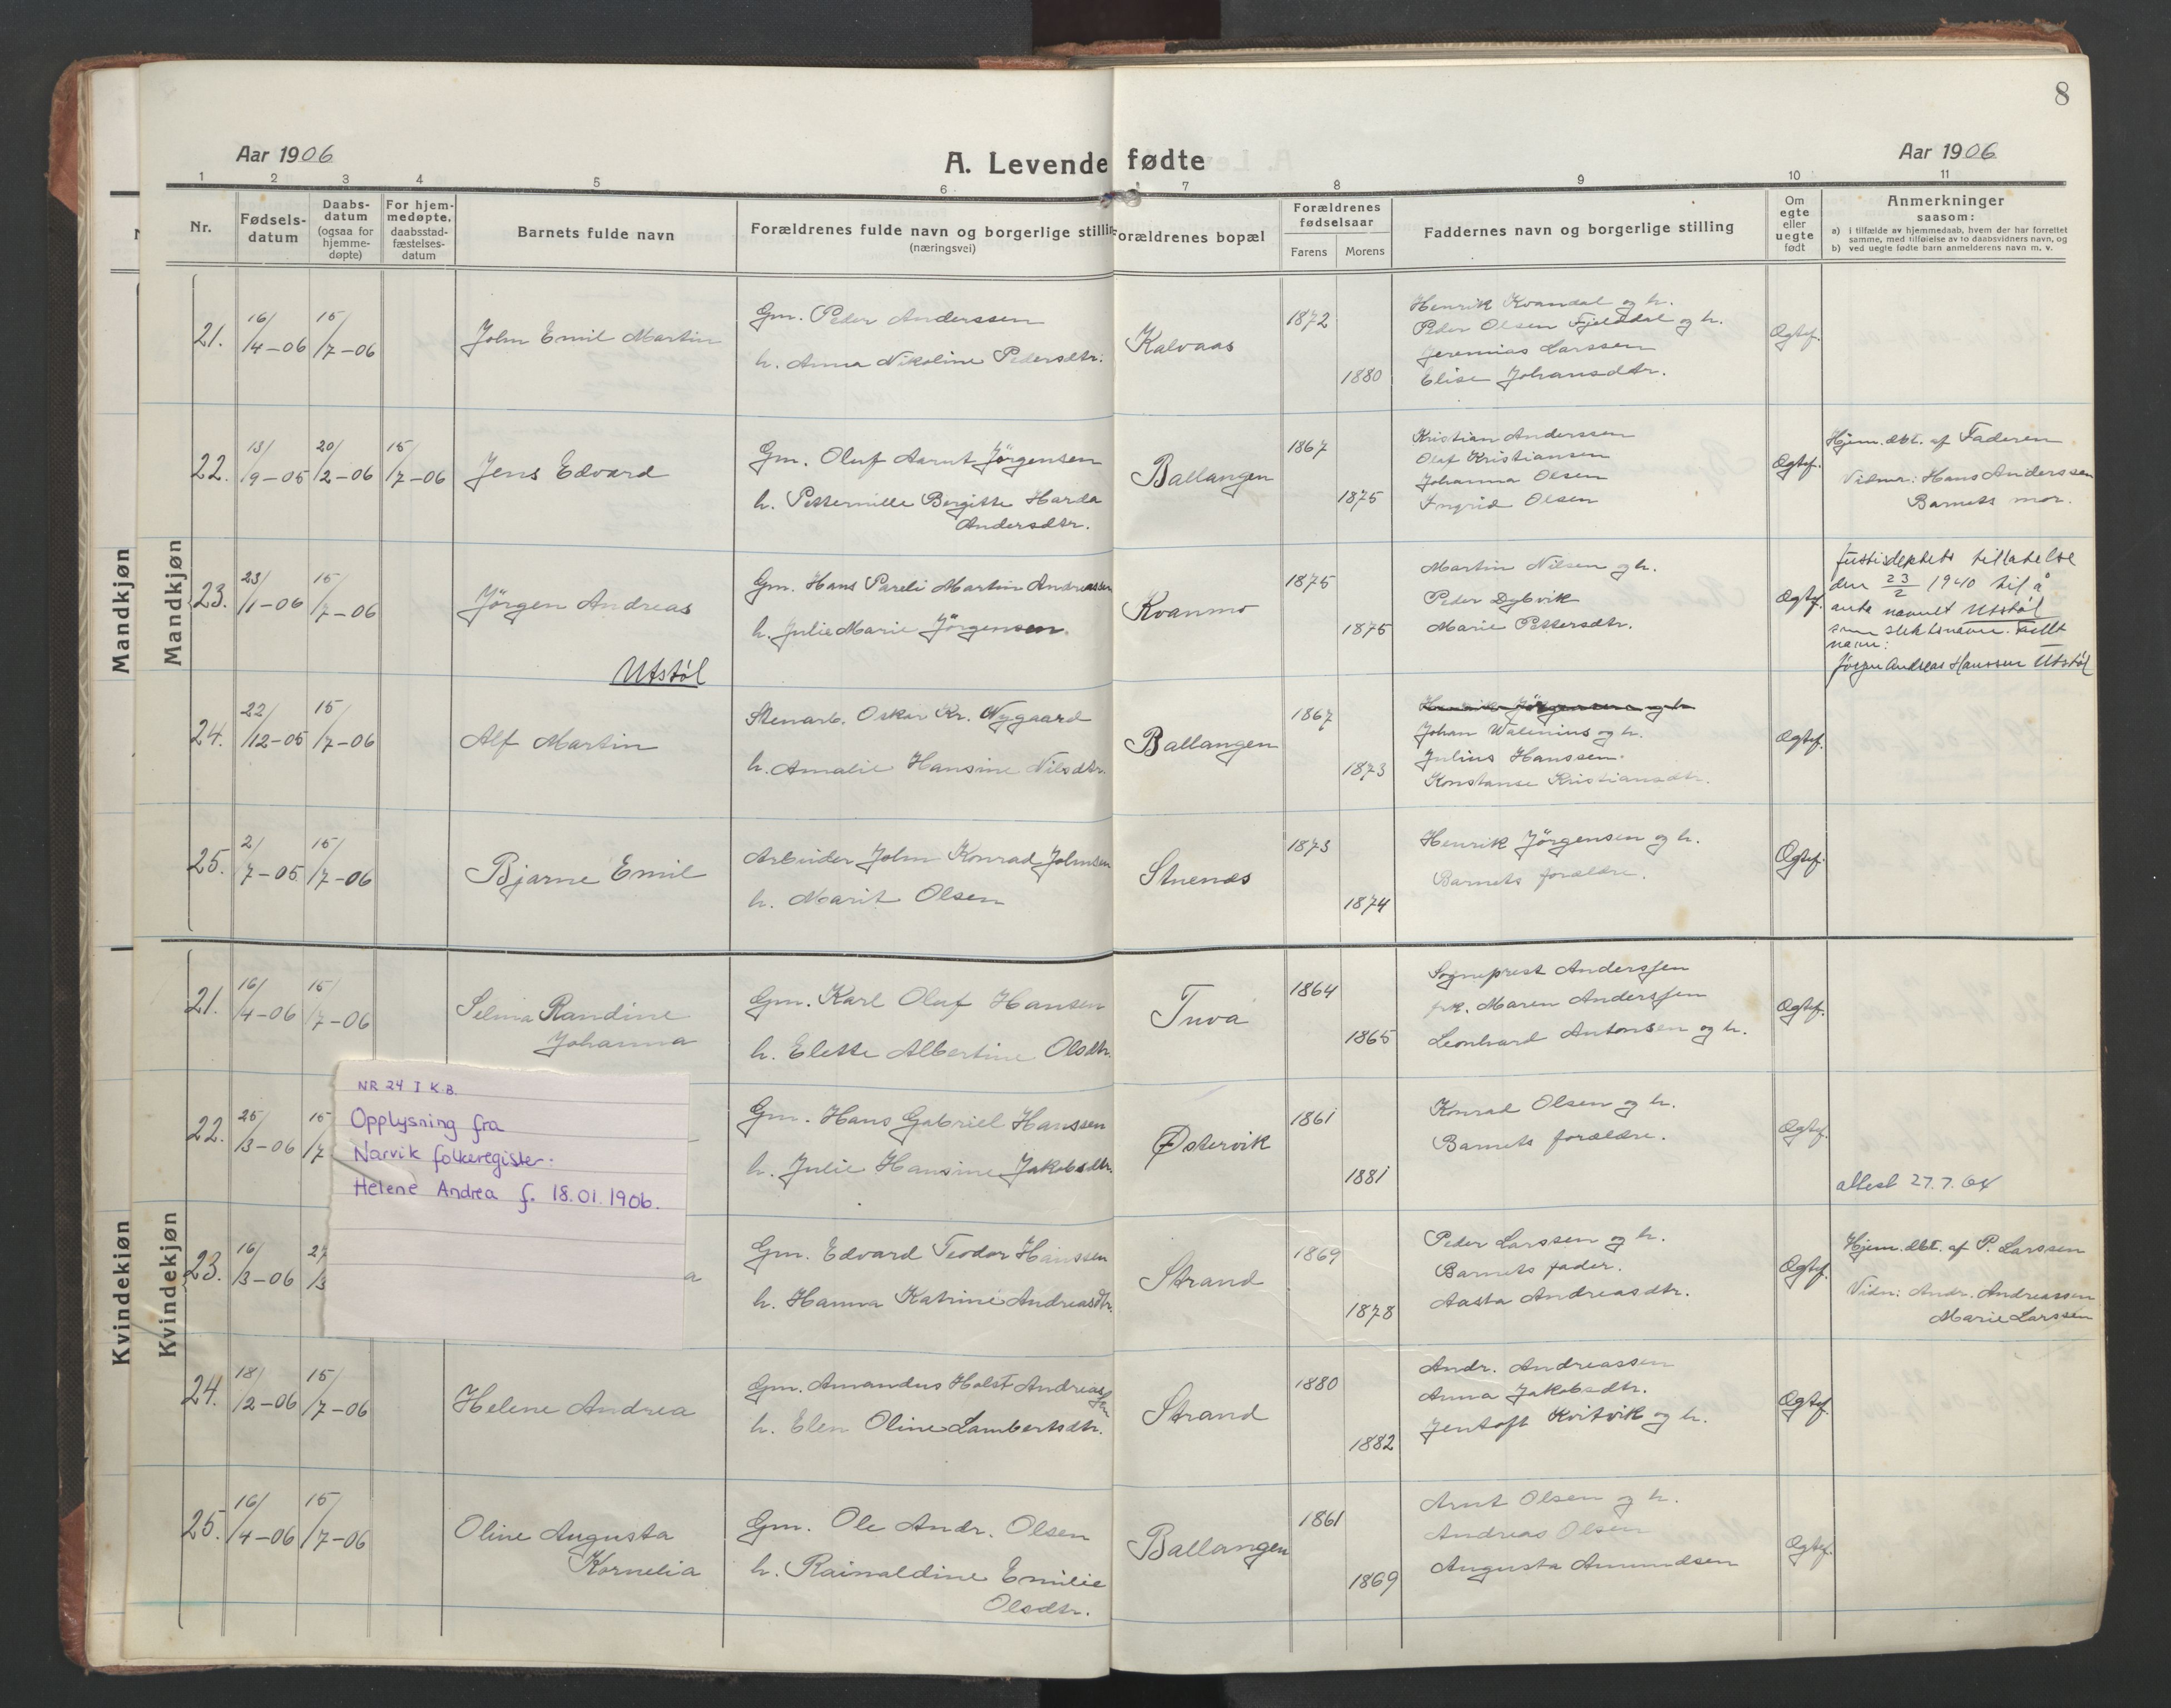 8
Aar 1906
A. Levende fødte
Aar 1906
1 2 3 4 5 6 7 8 9 10 11
Nr.
Fødsels-
datum
Daabs-
datum
(ogsaa for
hjemme-
døpte)
For hjem-
medøpte.
daabsstad-
fæstelses-
datum
Barnets fulde navn
Forældrenes fulde navn og borgerlige stillin
(næringsvei)
orældrenes bopæl
Forældrenes
fødselsaar
Farens Morens
Faddernes navn og borgerlige stilling
Om
egte
eller
uegte
født
Anmerkninger
saasom:
a) i tilfælde av hjemmedaab, hvem der har forrettet
samme, med tilføielse av to daabsvidners navn, og
b) ved uegte fødte barn anmelderens navn m. v.
Mandkjøn
Mandkjøn
21.
16/4-06
15/7-06
John Emil Martin
Gm. Peder Anderssen
h. Anna Nikoline Pedersdtr.
Kalvaas
1872
1880
Henrik Kvandal og h.
Peder Olsen Fjelddal og h.
Jeremias Larssen
Elise Johansdtr.
Ægtef.
22.
13/9-05
20/2-06
15/7-06
Jens Edvard
Gm. Oluf Aarnt Jörgensen
h. Petternille Bergitte Harda
Andersdtr.
Ballangen
1867
1875
Kristian Anderssen
Olaf Kristiansen
Johanna Olsen
Ingrid Olsen
Ægtef.
Hjem.dbt. af Faderen
Vidner: Hans Anderssen
Barnets mor.
23.
23/1-06
15/7-06
Jörgen Andreas
Utstöl
Gm. Hans Pareli Martin Andreassen
h. Julie Marie Jörgensen.
Kvanmo
1875
1875
Martin Nilsen og h.
Peder Dybvik
Marie Pettersdtr.
Ægtef.
Justisdeptets tillatelse
den 23/2 1940 til å
anta navnet Utstöl
som slektsnavn. Fullt
navn:
Jörgen Andreas Hanssen Utstöl
24.
22/12-05
15/7-06
Alf Martin
Stenarb. Oskar Kr. Nygaard
h. Amalie Hansine Nilsdtr.
Ballangen
1867
1873
Henrik Jörgensen og h.
Johan Walenius og h.
Julius Hanssen.
Konstanse Kristiansdtr.
Ægtef.
25.
2/7-05
15/7-06
Bjarne Emil
Arbeider John Konrad Johnsen
h. Marit Olsen
Stuenes
1873
1874
Henrik Jörgensen og h.
Barnets forældre.
Ægtef.
Kvindekjøn
Kvindekjøn
21.
16/4-06
15/7-06
Selma Randine
Johanna
Gm. Karl Oluf Hansen
h. Elette Albertine Olsdtr.
Tuva
1864
1865
Sogneprest Anderssen
frk. Maren Anderssen
Leonhard Antonsen og h.
Ægtef.
22.
25/3-06
15/7
Gm. Hans Gabriel Hanssen
h. Julie Hansine Jakobsdtr.
Østervik
1861
1881
Konrad Olsen og h.
Barnets forældre.
Ægtef.
attest 27.7.64
NR 24 I K.B.
Opplysning fra
Narvik folkeregister:
Helene Andrea f. 18.01.1906.
23.
16/3-06
27/3
a
Gm. Edvard Teodor Hanssen
h. Hanna Katrine Andreasdtr.
Strand
1869
1878
Peder Larssen og h.
Barnets fader.
Aasta Andreasdtr.
Ægtef.
Hjem.dbt. af P. Larssen
Vidn: Andr. Andreassen
Marie Larssen
24.
18/2-06
15/7-06
Helene Andrea
Gm. Amandus Holst Andreassen
h. Elen Oline Lambertsdtr.
Strand
1880
1882
Andr. Andreassen
Anna Jakobsdtr.
Jentoft Kvitvik og h.
Ægtef.
25.
16/4-06
15/7-06
Oline Augusta
Kornelia
Gm. Ole Andr. Olsen
h. Rainaldine Emilie
Olsdtr.
Ballangen
1861
1869
Arnt Olsen og h.
Andreas Olsen
Augusta Amundsen
Ægtef.